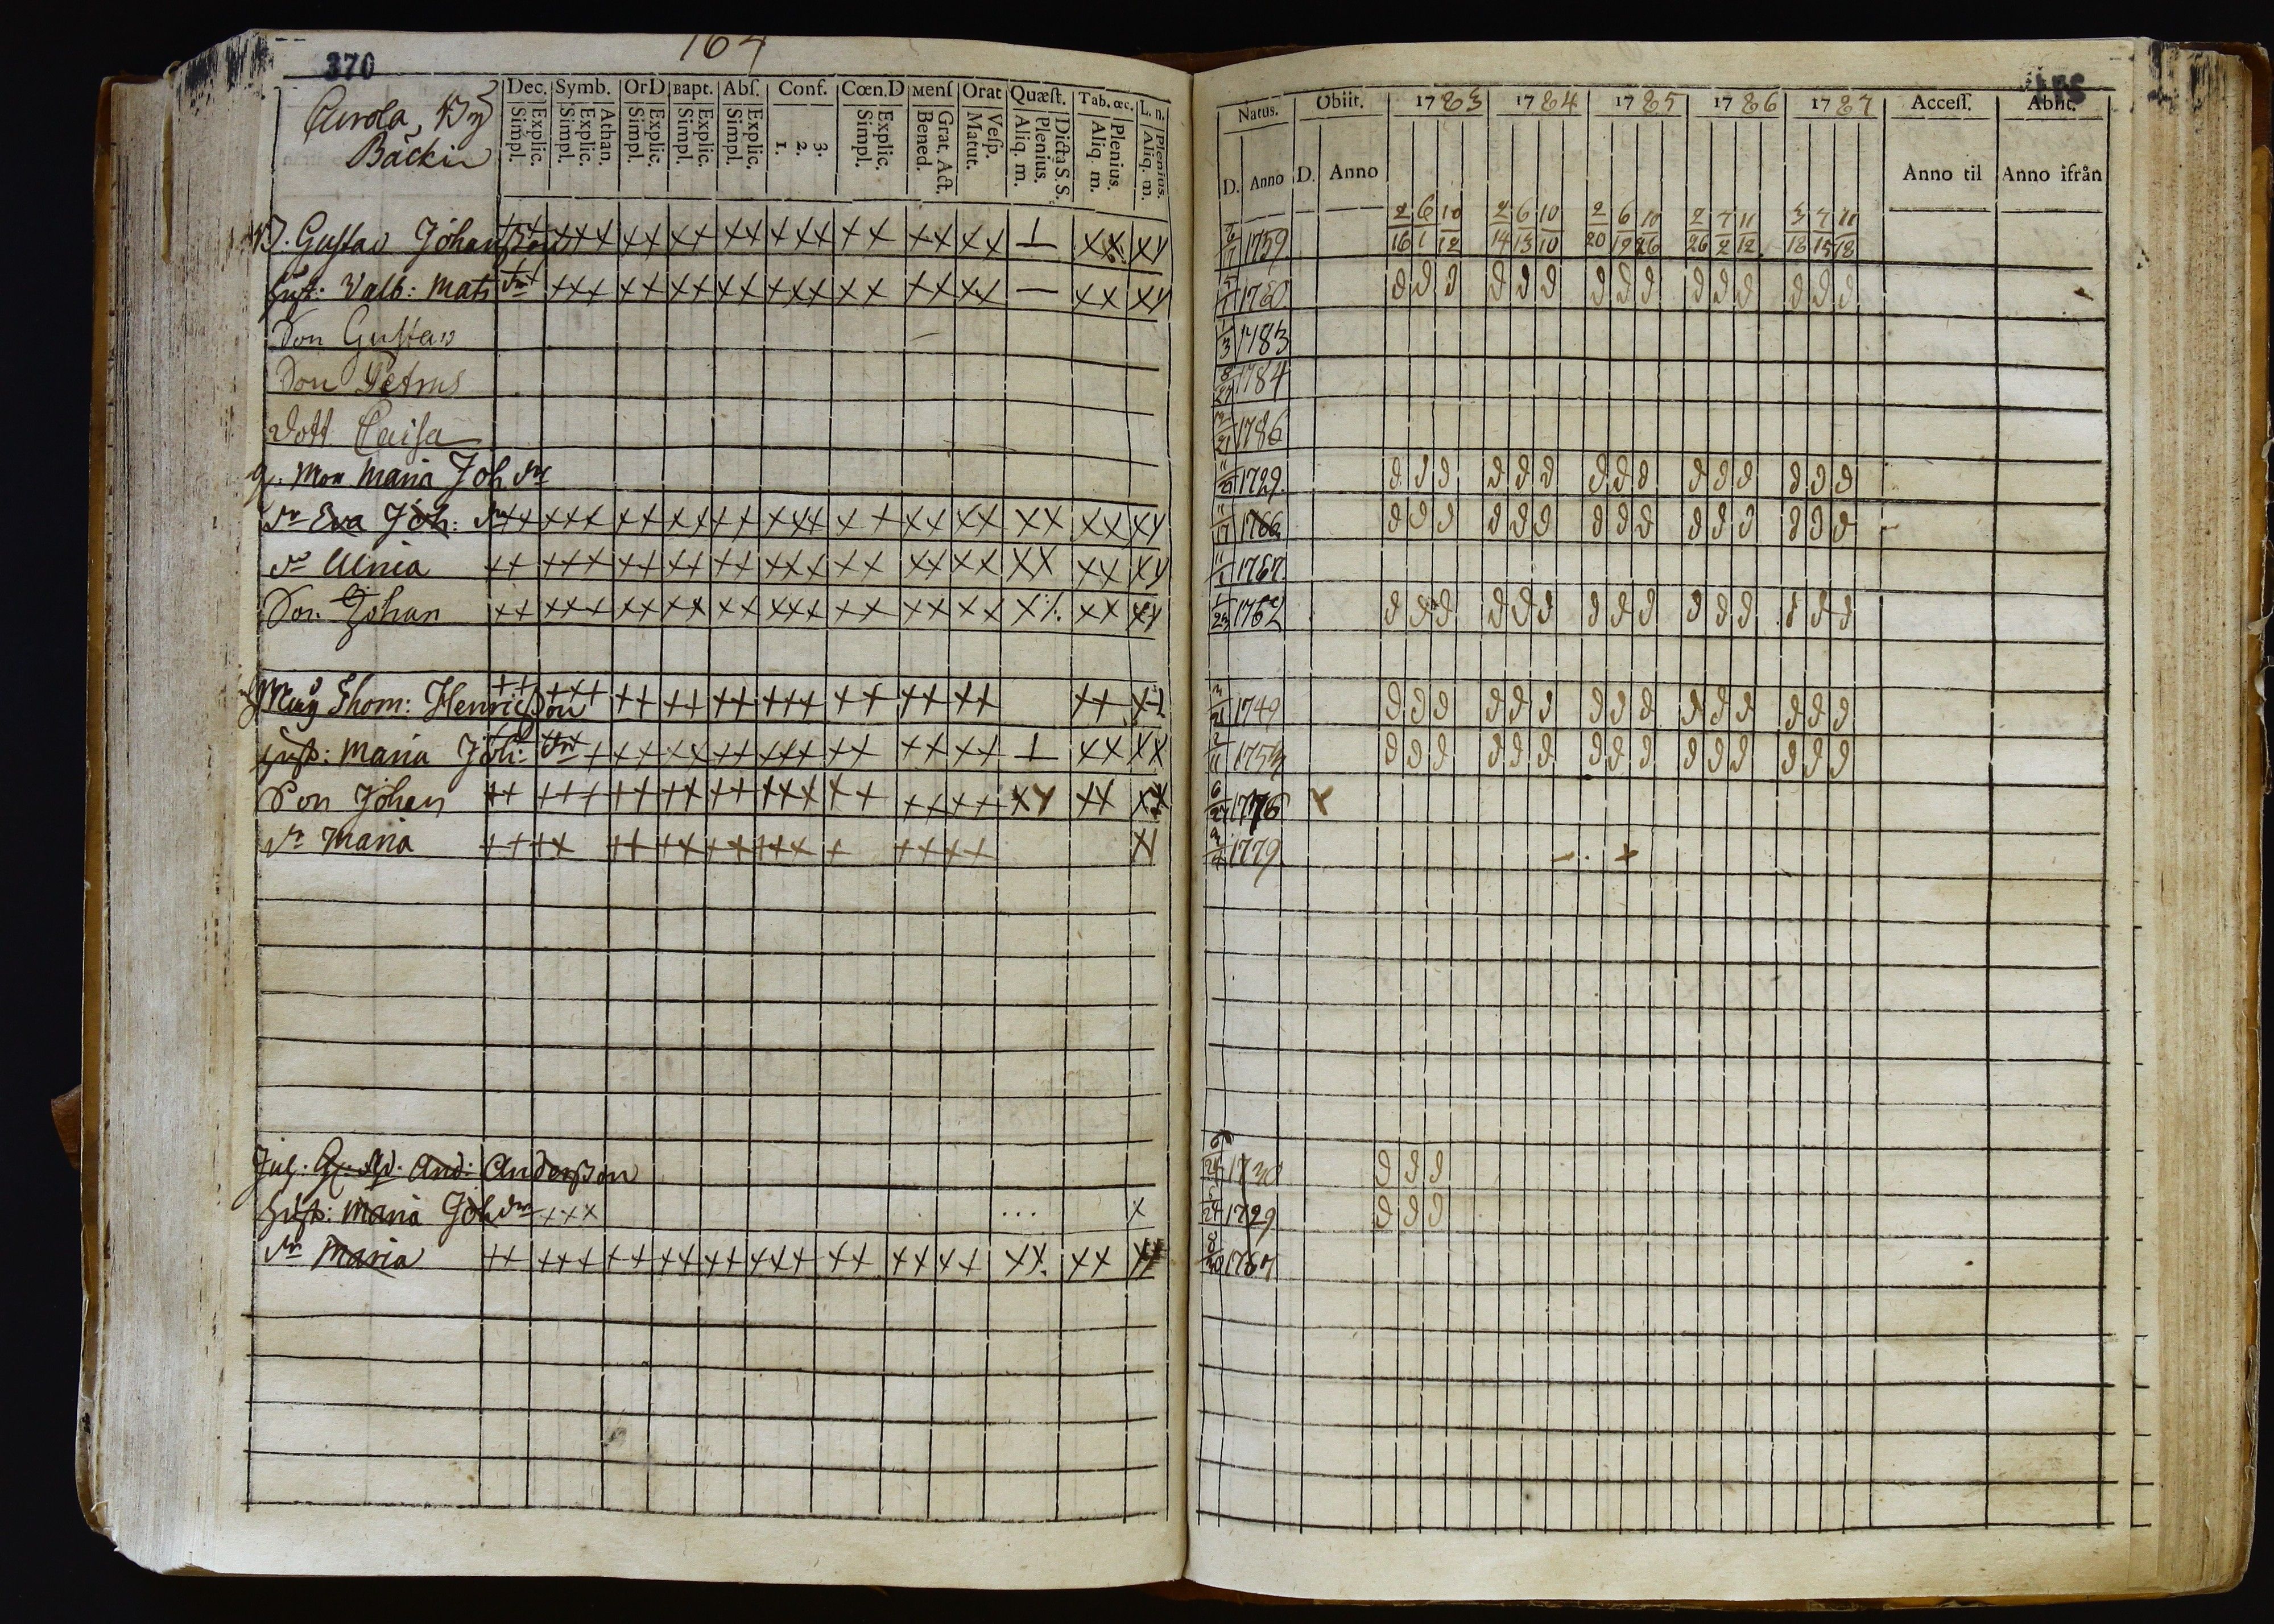 370
164
Aurola By
Bäcki
Dec. Symb. Or D Bapt. Abſ. Conf. Cœn.D Menſ Orat Quæſt. Tab. œc. L. n.
Explic. Simpl. Athan. Explic. Simpl. Explic. Simpl. Explic. Simpl. Explic. Simpl. 3. 2. 1. Explic. Simpl. Grat. Act. Bened. Veſp. Matut. Dicta S. S. Plenius. Aliq. m. Plenius. Aliq. m. Plenius. Aliq. m.
Natus. Obiit. 1783 1784 1785 1786 1787 Acceſſ. Abiit.
D. Anno D. Anno Anno til Anno ifrån
2/16 6/1 10/12 2/14 6/13 10/10 2/20 6/19 10/26 2/26 7/2 11/12 3/18 7/15 11/18
B. Gustav Johansson ++ +++ ++ ++ ++ +++ ++ ++ ++ ⊥ ++ ++ 1759
Hust: Valb: Mats dr +++ ++ ++ ++ +++ ++ ++ ++ — ++ ++ 1760 ∂∂∂ ∂∂∂ ∂∂∂ ∂∂∂ ∂∂∂
Son Gustav 1/3 1783
Son Petrus 8/27 1784
Dott Caisa 12/21 1786
g. Mor Maria Joh dr 1729 ∂∂∂ ∂∂∂ ∂∂∂ ∂∂∂ ∂∂∂
dr Eva Joh: dr ++ +++ ++ ++ ++ +++ ++ ++ ++ ++ ++ ++ 11/17 1766 ∂∂∂ ∂∂∂ ∂∂∂ ∂∂∂ ∂∂∂
dr Ulrica ++ +++ ++ ++ ++ +++ ++ ++ ++ ++ ++ ++ 11/1 1767
Son Johan ++ +++ ++ ++ ++ +++ ++ ++ ++ +·/. ++ ++ 1/23 1762 ∂∂∂ ∂∂∂ ∂∂∂ ∂∂∂ ∂∂∂
Måg Thom: Henricsson ++ +++ ++ ++ ++ +++ ++ ++ ++ ++ ++ 3/21 1749 ∂∂∂ ∂∂∂ ∂∂∂ ∂∂∂ ∂∂∂
Hust: Maria Joh: dr +++ ++ ++ ++ +++ ++ ++ ++ ⊥ ++ ++ 2/11 1753 ∂∂∂ ∂∂∂ ∂∂∂ ∂∂∂ ∂∂∂
Son Johan ++ +++ ++ ++ ++ +++ ++ ++ ++ ++ ++ ++ 6/24 1776 +
dr Maria ++ ++ ++ ++ ++ +++ + ++ ++ ++ 1779 — · +
And: Andersson 1730 ∂∂∂
Hust: Maria Joh dr +++ ... + 1729 ∂∂∂
dr Maria ++ +++ ++ ++ ++ +++ ++ ++ ++ ++. ++ ++ 8/30 1767